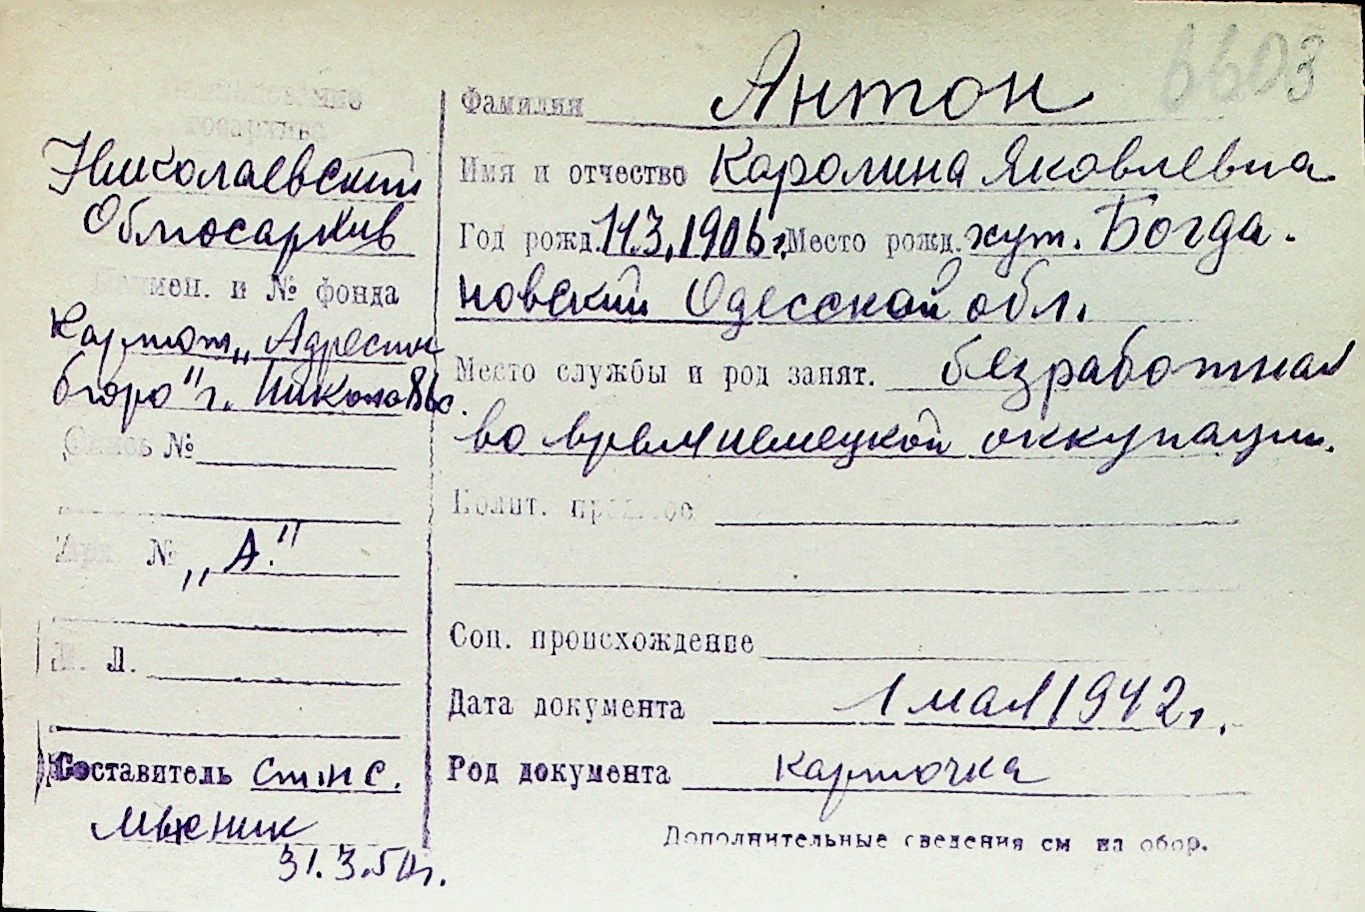 6603
Наименование
госархива
Николаевский
Облгосархив
Наимен. и № фонда
Картот. „Адресн.
бюро" г. Николаев
Опись №
Арх. № „А."
Л. Л.
Составитель ст. н. с.
31.3.50г.
Фамилия Антон
Имя и отчество Каролина Яковлевна
Год рожд. 14.3.1906 г. Место рожд. хут. Богда-
новский Одесской обл.
Место службы и род занят. безработная
во время немецкой оккупации.
Полит. прошлое
Соц. происхождение
Дата документа 1 мая 1942 г.
Род документа карточка
Дополнительные сведения см на обор.